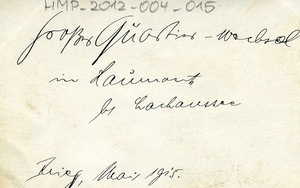 HMP-2012-004-015
Großer Quartier-Wechsel
in Haumont
bei Lachaussee
Krieg, Mai 1915.